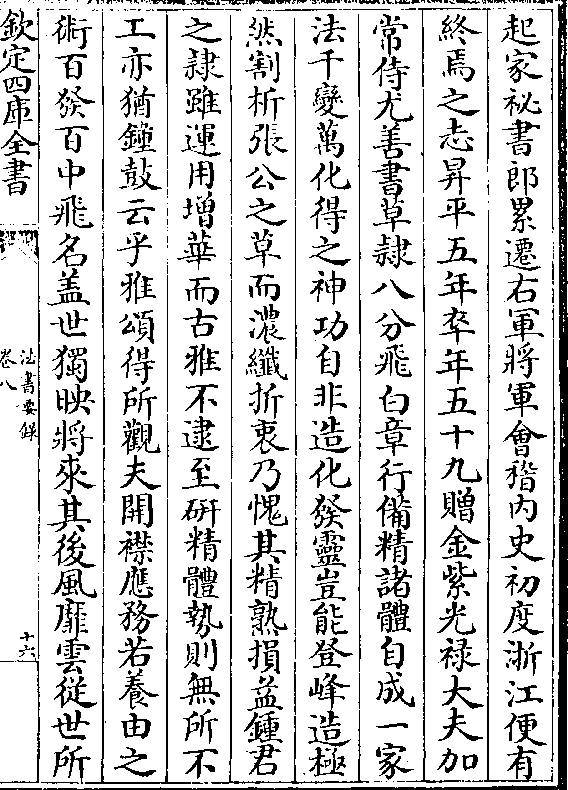 起家祕書郎累遷右軍將軍會稽内史初度浙江便有
終焉之志昇平五年卒年五十九贈金紫光禄大夫加
常侍尤善書草隷八分飛白章行備精諸體自成一家
法千變萬化得之神功自非造化發靈豈能登峰造極
然割析張公之草而濃纖折衷乃愧其精熟損益鍾君
之隷雖運用增華而古雅不逮至研精體勢則無所不
工亦猶鐘鼓云乎雅頌得所觀夫開襟應務若養由之
術百發百中飛名盖世獨映將來其後風靡雲從世所
欽定四庫全書
法書要録
卷八
十六